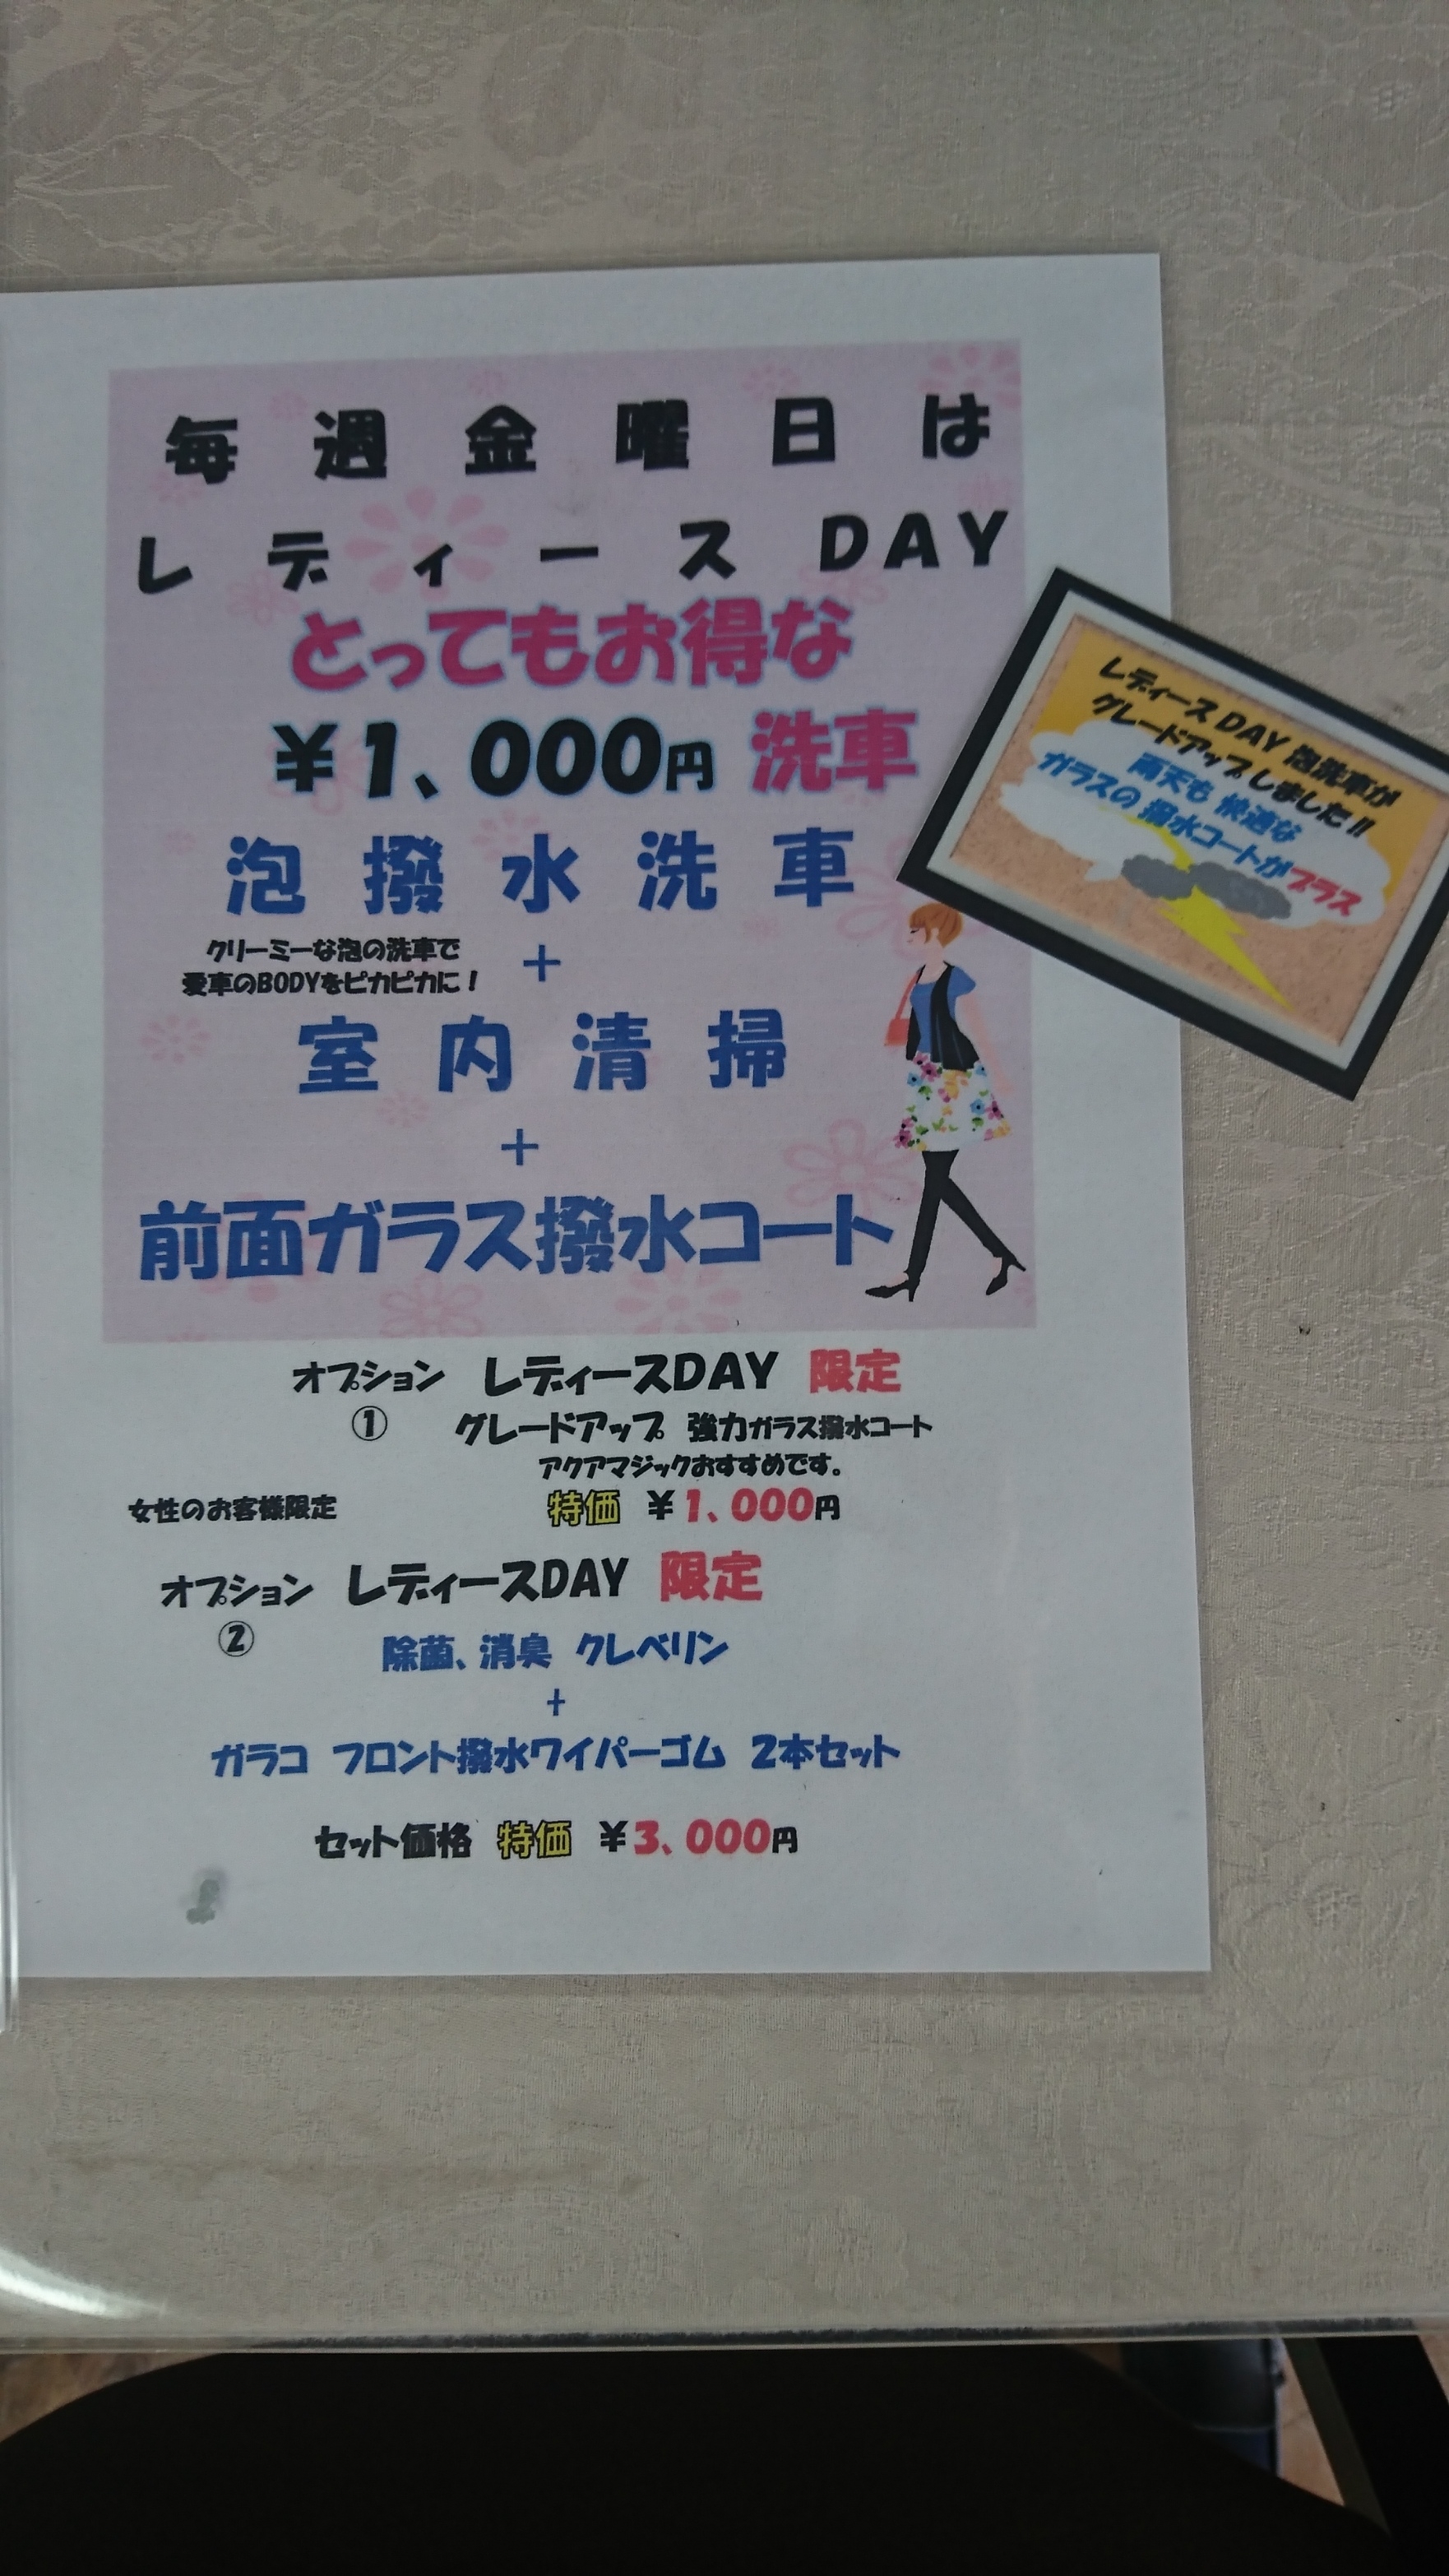 毎週金曜日は
レディース DAY
とってもお得な
￥1、000円 洗車
泡撥水洗車
クリーミーな泡の洗車で
愛車のBODYをピカピカに！
＋
室内清掃
＋
前面ガラス撥水コート
レディース DAY 泡洗車が
グレードアップしました!!
雨天も 快適な
ガラスの 撥水コートがプラス
オプション レディースDAY 限定
① グレードアップ 強力ガラス撥水コート
アクアマジックおすすめです。
女性のお客様限定 特価 ￥1、000円
オプション レディースDAY 限定
② 除菌、消臭 クレベリン
＋
ガラコ フロント撥水ワイパーゴム 2本セット
セット価格 特価 ￥3、000円